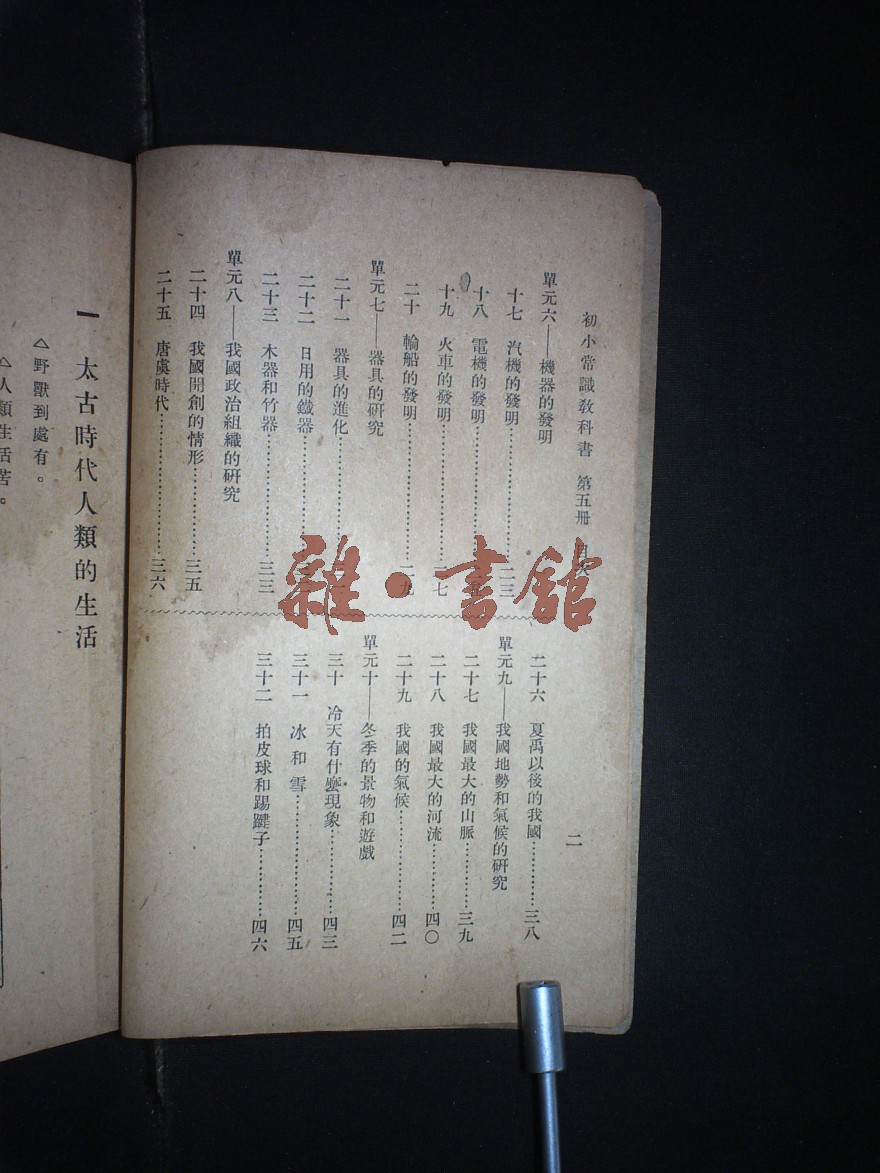 初小常識敎科書 第五冊 目次
二
單元六——機器的發明
十七 汽機的發明……………二三
十八 電機的發明……………
十九 火車的發明……………二七
二十 輪船的發明……………二九
單元七——器具的研究
二十一 器具的進化……………
二十二 日用的鐵器……………
二十三 木器和竹器……………三三
單元八——我國政治組織的研究
二十四 我國開創的情形……………三五
二十五 唐虞時代……………三六
二十六 夏禹以後的我國……………三八
單元九——我國地勢和氣候的研究
二十七 我國最大的山脈……………三九
二十八 我國最大的河流……………四〇
二十九 我國的氣候……………四二
單元十——冬季的景物和遊戲
三十 冷天有什麼現象……………四三
三十一 冰和雪……………四五
三十二 拍皮球和踢毽子……………四六
一 太古時代人類的生活
△野獸到處有。
△人類生活苦。
雜·書館